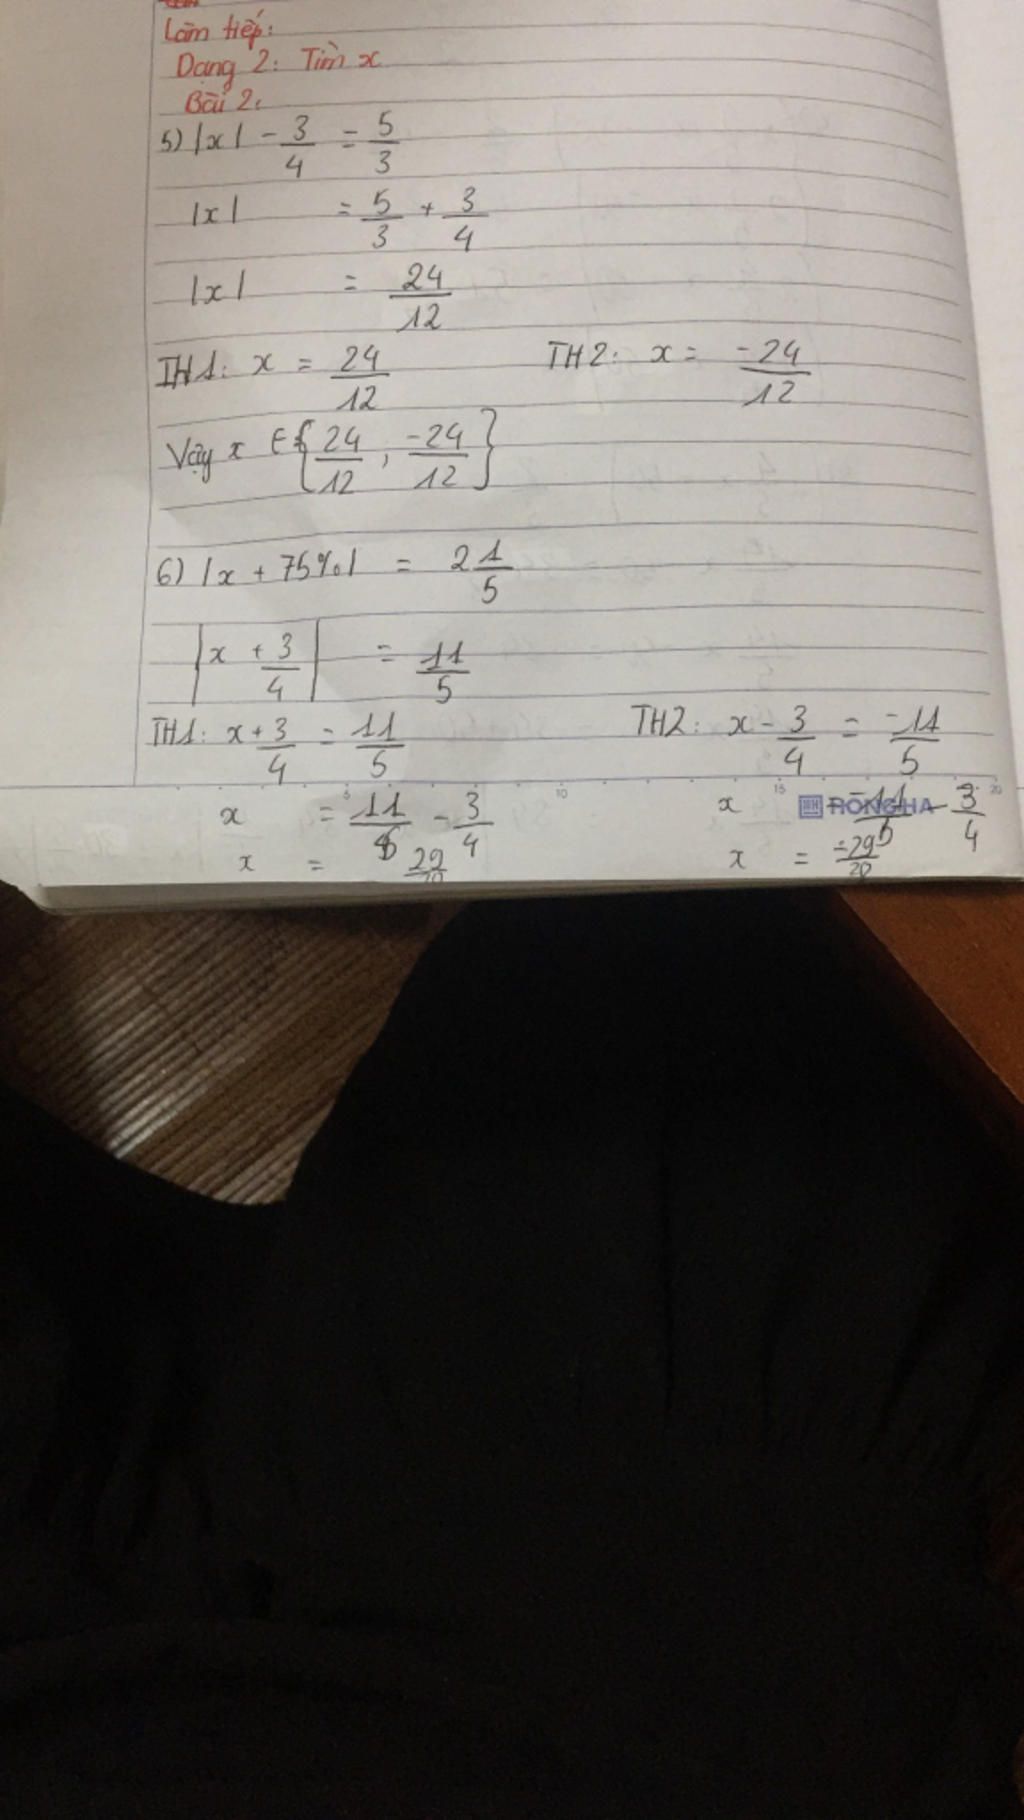 Làm tiếp:
Dạng 2: Tìm x
Bài 2:
5) |x| - 3/4 = 5/3
|x| = 5/3 + 3/4
|x| = 24/12
TH1: x = 24/12 TH2: x = -24/12
Vậy x ∈ {24/12, -24/12}
6) |x + 75%| = 2 1/5
|x + 3/4| = 11/5
TH1: x + 3/4 = 11/5 TH2: x - 3/4 = -11/5
5 10 15 20
x = 11/5 - 3/4 x = -11/5 - 3/4
HỒNG HÀ
x = 29/20 x = -29/20